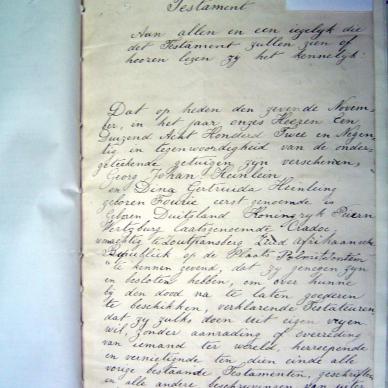 Testament
Aan allen en een iegelyk die
dit Testament zullen zien of
hooren lezen zy het kennelyk:
Dat op heden den zevende Novem-
ber, in het jaar onzes Heeren Een
Duizend Acht Honderd Twee en Negen-
tig in tegenwoordigheid van de onder-
geteekende getuigen zyn verschenen,
Georg Johan Heinlein
en Dina Gertruida Heinlein
geboren Fourie eerst genoemde is
Geboren Duitsland Koningryk Beiern
Wertzburg laatsgenoemde Cradoc,
Zoutpansberg Zuid Afrikaansche
Republiek op de Plaats Palmietfontein
te kennen gevend, dat zy genegen zyn
en besloten hebben, om over hunne
by den dood na te laten goederen
te beschikken, verklarende Testateuren
dat zy zulks doen uit eigen vryen
wil, zonder aanrading of overreding
van iemand ter wereld, herroepende
en vernietigende ten dien einde alle
vorige bestaande Testamenten, geschriften
en alle andere beschrevingen van uiter